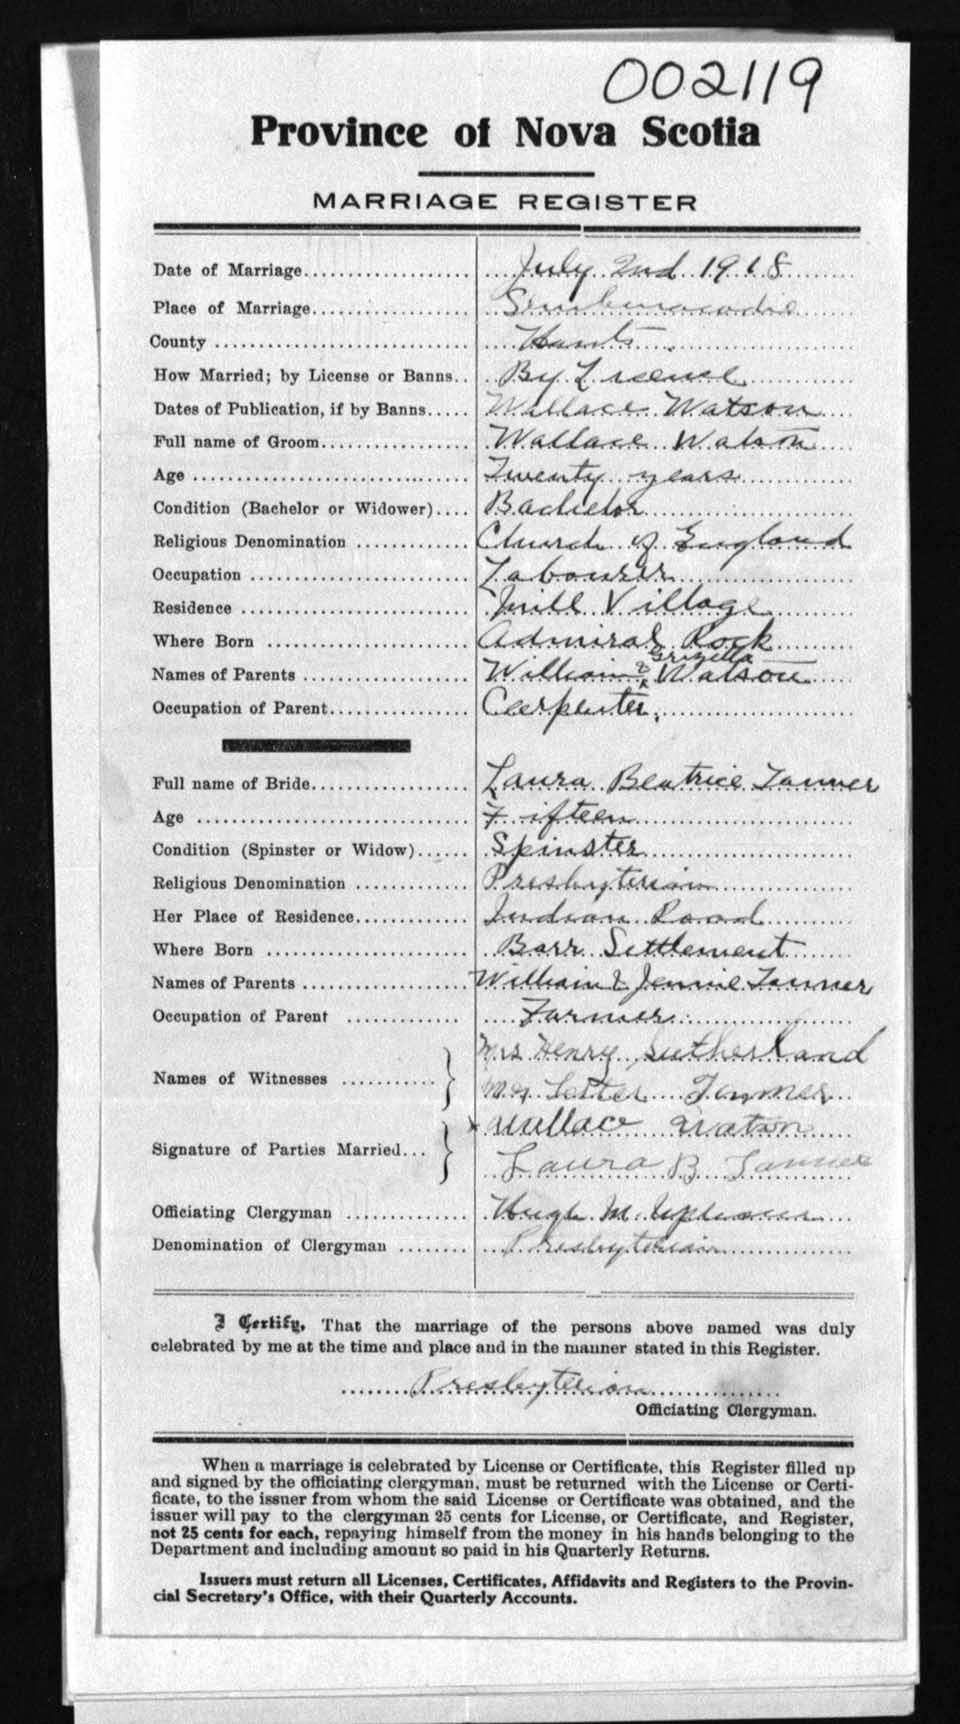 002119
Province of Nova Scotia
MARRIAGE REGISTER
Date of Marriage................... July 2nd 1918
Place of Marriage.................. Shubenacadie
County ............................ Hants
How Married; by License or Banns.. By License
Dates of Publication, if by Banns..... Wallace Watson
Full name of Groom................. Wallace Watson
Age ............................... Twenty years
Condition (Bachelor or Widower).... Bachelor
Religious Denomination ............. Church of England
Occupation ......................... Labourer
Residence .......................... Mill Village
Where Born ........................ Admiral Rock
Names of Parents ................... William & Grizella Watson
Occupation of Parent................. Carpenter.
Full name of Bride................... Laura Beatrice Tanner
Age ................................ Fifteen
Condition (Spinster or Widow)...... Spinster
Religious Denomination ............. Presbyterian
Her Place of Residence............. Indian Road
Where Born ........................ Barr Settlement
Names of Parents ................... William & Jennie Tanner
Occupation of Parent ............. Farmer
Names of Witnesses ........... } Mrs Henry Sutherland
Mr Lester Tanner
Signature of Parties Married... } x Wallace Watson
Laura B Tanner
Officiating Clergyman .............. Hugh M. Upham
Denomination of Clergyman ........ Presbyterian
I Certify, That the marriage of the persons above named was duly
celebrated by me at the time and place and in the manner stated in this Register.
Presbyterian
Officiating Clergyman.
When a marriage is celebrated by License or Certificate, this Register filled up
and signed by the officiating clergyman, must be returned with the License or Certi-
ficate, to the issuer from whom the said License or Certificate was obtained, and the
issuer will pay to the clergyman 25 cents for License, or Certificate, and Register,
not 25 cents for each, repaying himself from the money in his hands belonging to the
Department and including amount so paid in his Quarterly Returns.
Issuers must return all Licenses, Certificates, Affidavits and Registers to the Provin-
cial Secretary's Office, with their Quarterly Accounts.